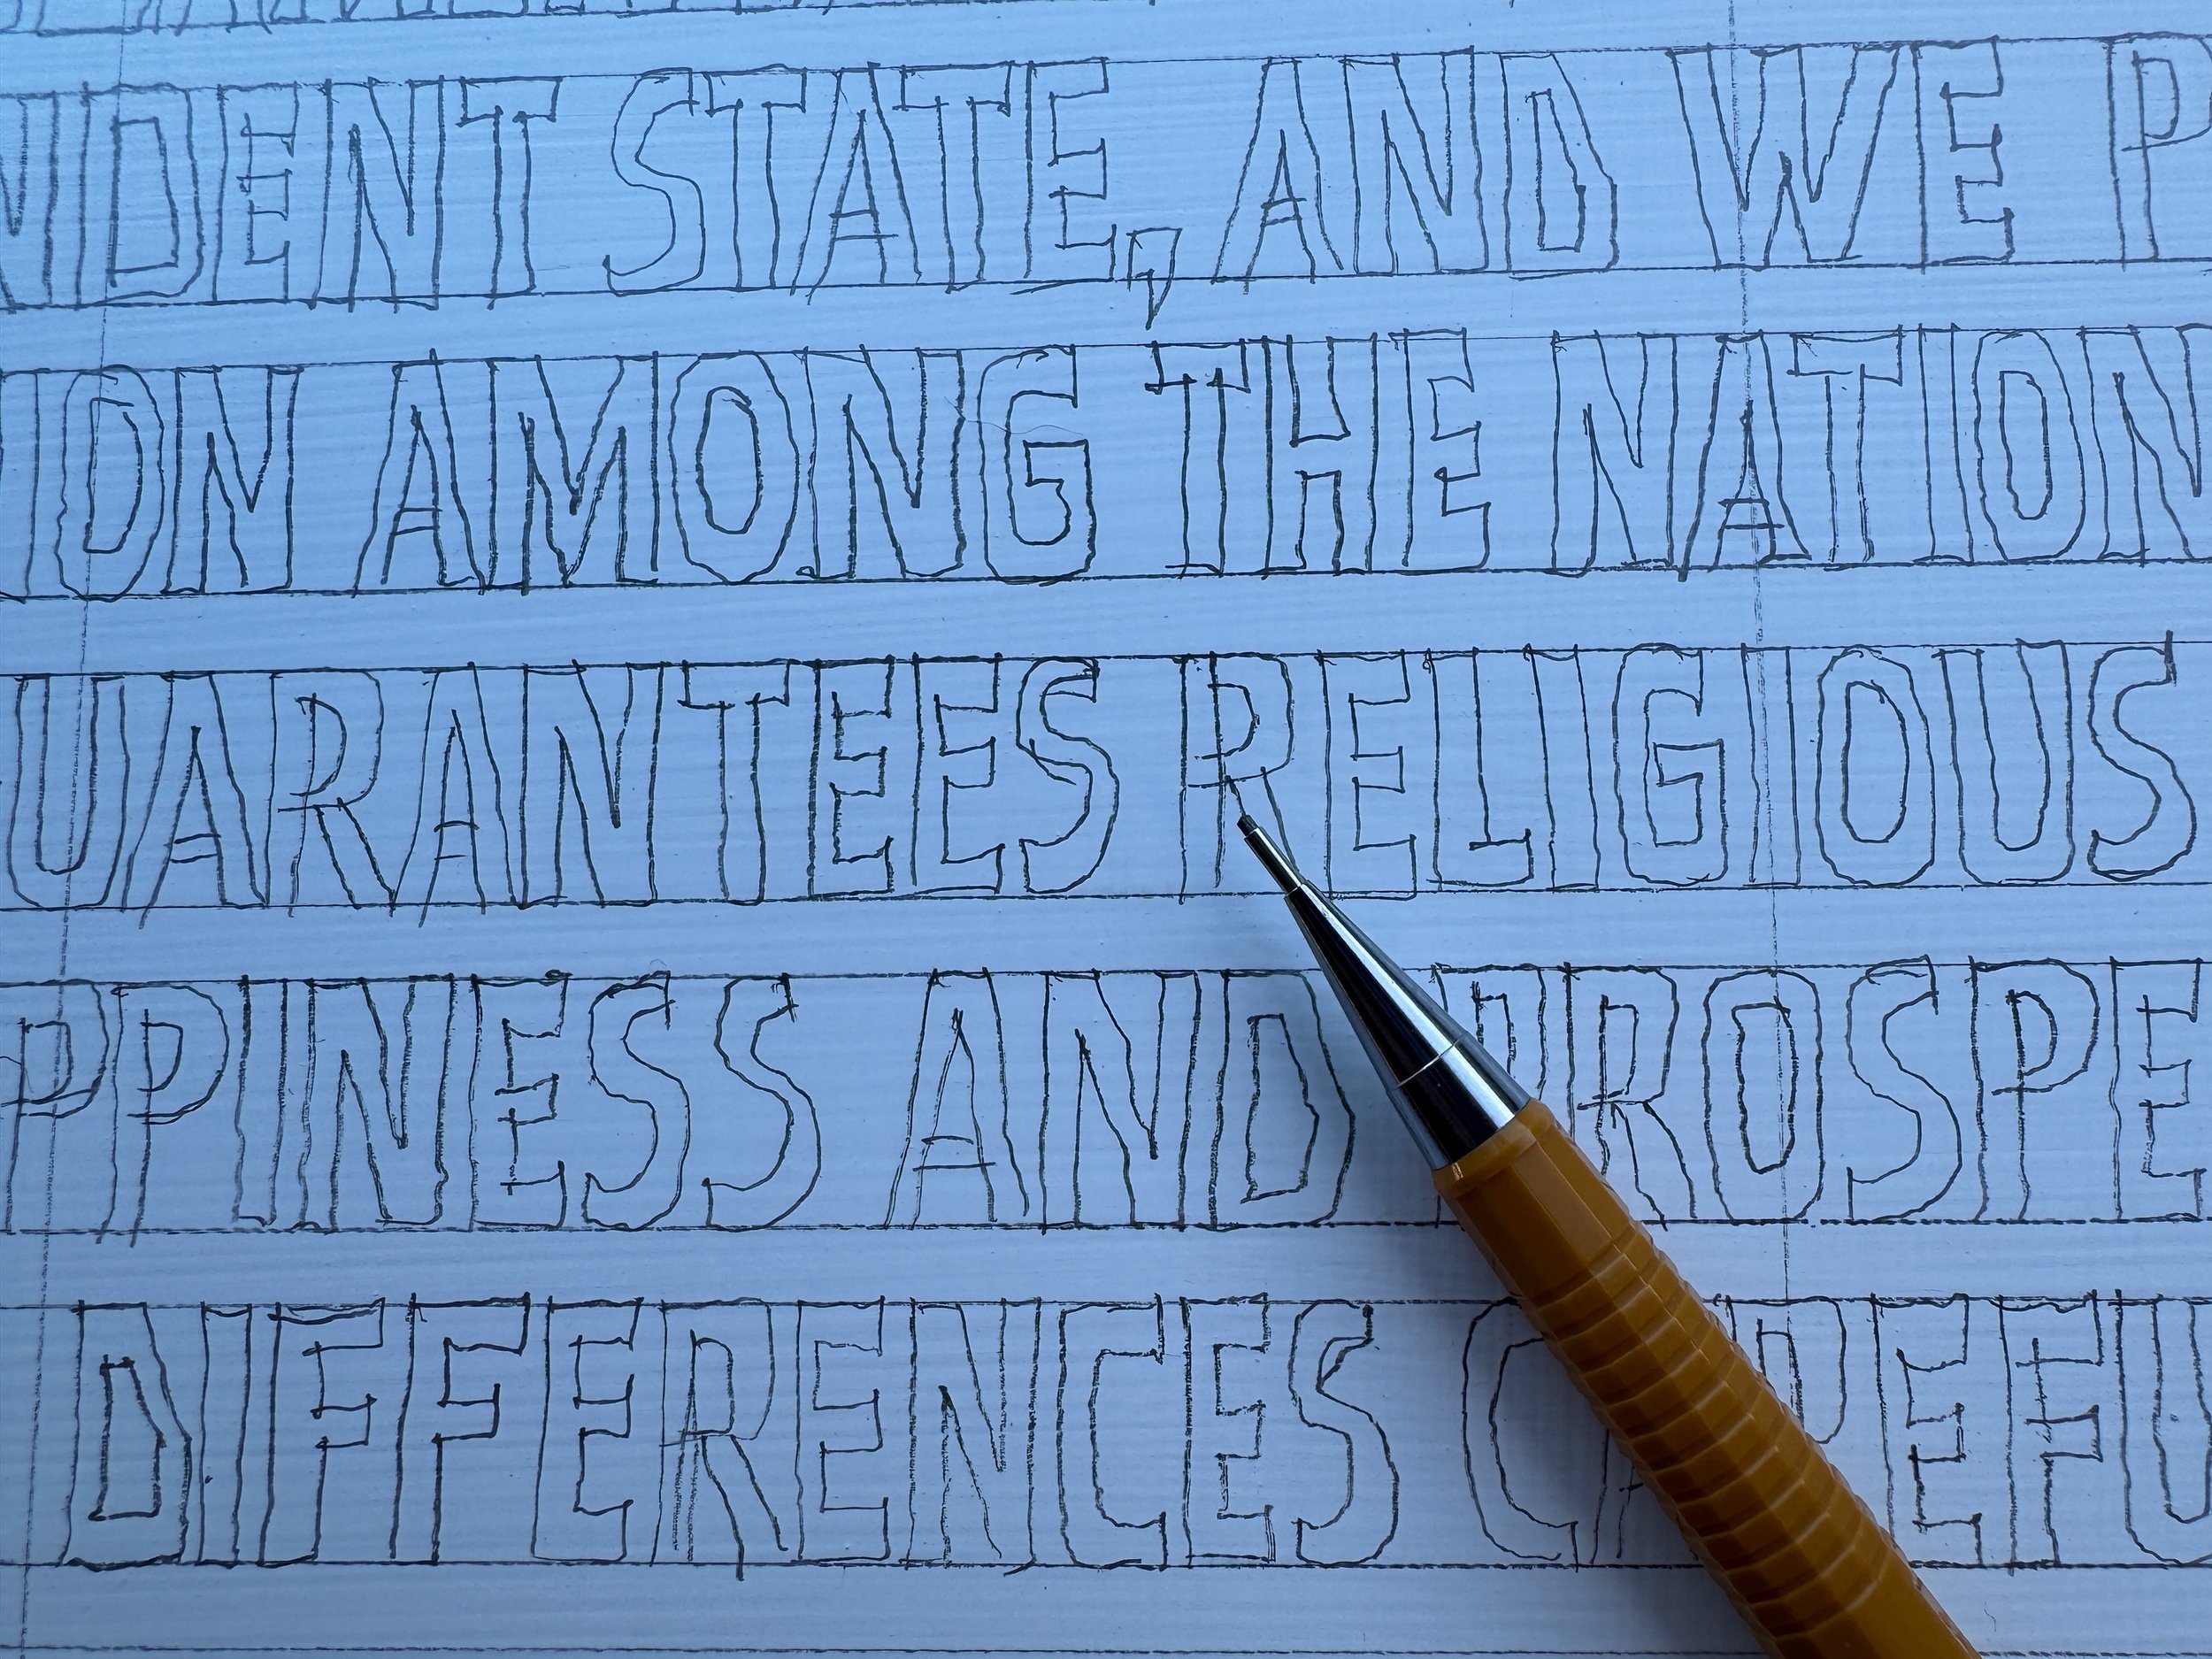 NDENT STATE, AND WE P
ION AMONG THE NATION
UARANTEES RELIGIOUS
PPINESS AND PROSPE
DIFFERENCES CAREFU